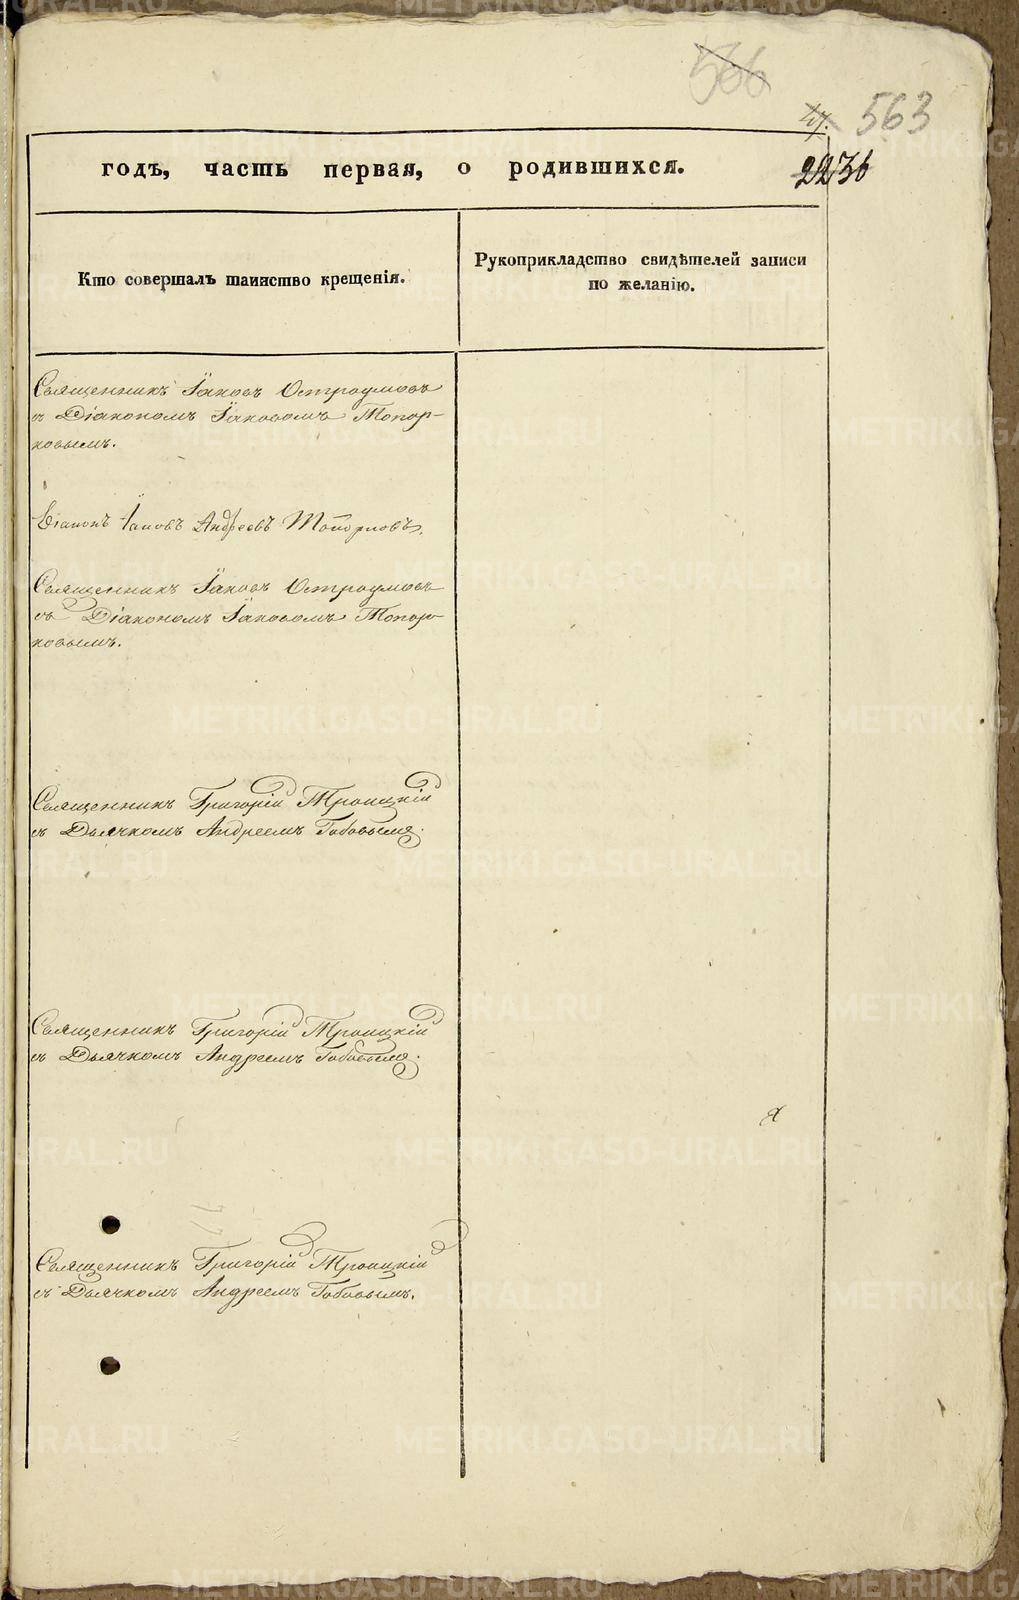 566
563
годъ, часть первая, о родившихся.
2236
Кто совершалъ таинство крещенія.
Рукоприкладство свидѣтелей записи
по желанію.
Священникъ Іаковъ Остроумовъ
съ Діакономъ Іаковомъ Топор-
ковымъ.
Діаконъ Іаковъ Андреевъ Топорковъ.
Священникъ Іаковъ Остроумовъ
съ Діакономъ Іаковомъ Топор-
ковымъ.
Священникъ Григорій Троицкій
съ Дьячкомъ Андреемъ Бабовымъ.
Священникъ Григорій Троицкій
съ Дьячкомъ Андреемъ Бабовымъ.
Священникъ Григорій Троицкій
съ Дьячкомъ Андреемъ Бабовымъ.
METRIKI.GASO-URAL.RU